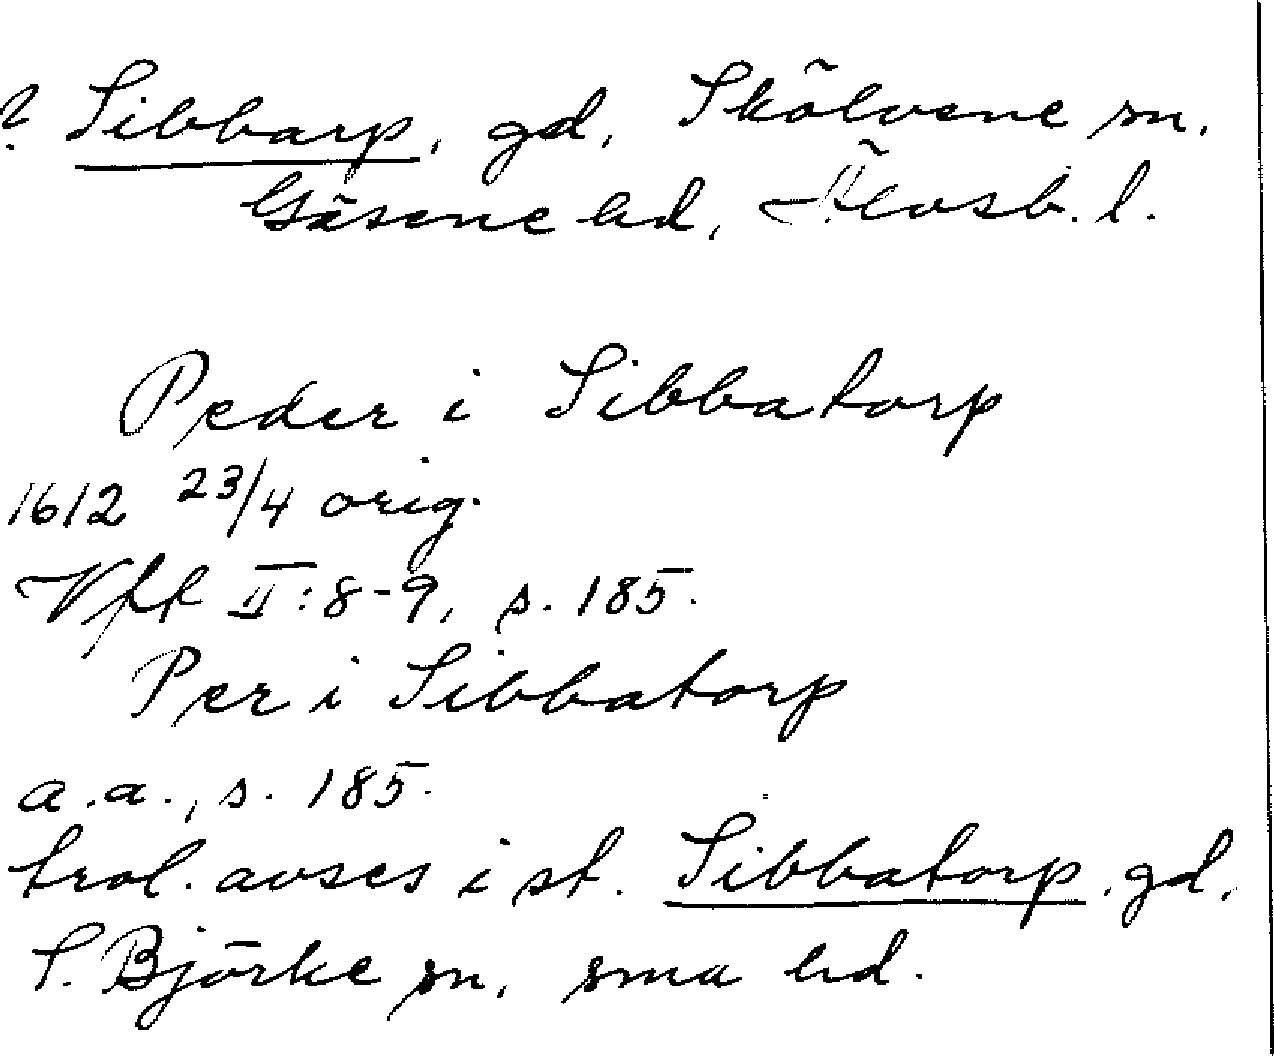 ? Sibbarp, gd, Skölvene sn,
Gäsene hd, Älvsb. l.
Peder i Sibbatorp
1612 23/4 orig.
Vfft II:8-9, s. 185.
Per i Sibbatorp
a.a., s. 185.
trol. avses i st. Sibbatorp, gd,
S. Björke sn, sma hd.